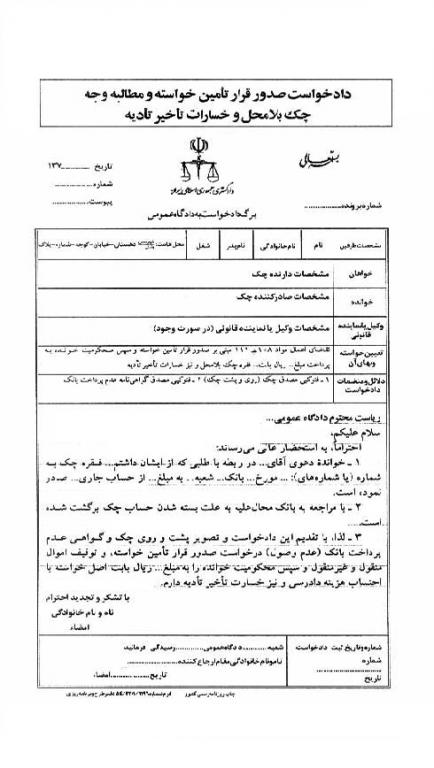 دادخواست صدور قرار تأمین خواسته و مطالبه وجه
چک بلامحل و خسارات تأخیر تأدیه
بسمه تعالی
تاریخ ............ ۱۳۷
شماره ............
پیوست ............
دادگستری جمهوری اسلامی ایران
شماره پرونده ............
برگ دادخواست به دادگاه عمومی
مشخصات طرفین نام نام خانوادگی نام پدر شغل محل اقامت: شهرستان–خیابان–کوچه–شماره–پلاک
خواهان مشخصات دارنده چک
خوانده مشخصات صادرکننده چک
وکیل یا نماینده قانونی مشخصات وکیل یا نماینده قانونی (در صورت وجود)
تعیین خواسته وبهای آن تقاضای اعمال مواد ۱۰۸ـ ۱۱۶ مبنی بر صدور قرار تأمین خواسته و سپس محکومیت خوانده به
پرداخت مبلغ... ریال بابت... فقره چک بلامحل و نیز خسارات تأخیر تأدیه
دلائل و منضمات دادخواست ۱ ـ فتوکپی مصدق چک (روی و پشت چک) ۲ ـ فتوکپی مصدق گواهی‌نامه عدم پرداخت بانک
ریاست محترم دادگاه عمومی...
سلام علیکم،
احتراماً، به استحضار عالی می‌رساند:
۱ ـ خواندهٔ دعوی آقای... در ربطه با طلبی که از ایشان داشتم... فقره چک به
شماره (یا شماره‌های): ... مورخ... بانک... شعبه... به مبلغ... از حساب جاری... صادر
نموده است.
۲ ـ با مراجعه به بانک محال‌علیه به علت بسته شدن حساب چک برگشت شده
است.
۳ ـ لذا، با تقدیم این دادخواست و تصویر پشت و روی چک و گواهی عدم
پرداخت بانک (عدم وصول) درخواست صدور قرار تأمین خواسته، و توقیف اموال
منقول و غیرمنقول و سپس محکومیت خوانده را به مبلغ... ریال بابت اصل خواسته با
احتساب هزینه دادرسی و نیز خسارت تأخیر تأدیه دارم.
با تشکر و تجدید احترام
نام و نام خانوادگی
امضاء
شماره و تاریخ ثبت دادخواست
شماره
تاریخ
شعبه ............ دادگاه عمومی ............ رسیدگی فرمائید.
نام و نام خانوادگی مقام ارجاع کننده ............
تاریخ ............ امضاء
چاپ روزنامه رسمی کشور